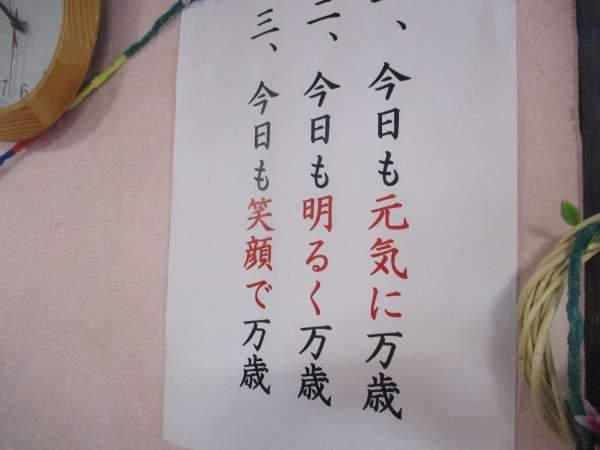 一、今日も元気に万歳
二、今日も明るく万歳
三、今日も笑顔で万歳
7 6